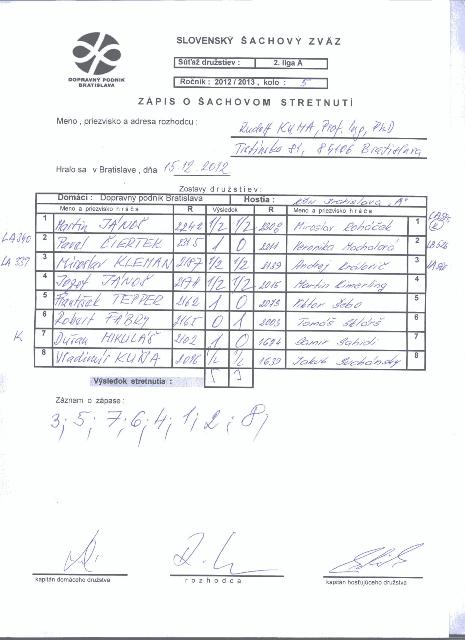 DOPRAVNÝ PODNIK
BRATISLAVA
SLOVENSKÝ ŠACHOVÝ ZVÄZ
Súťaž družstiev : 2. liga A
Ročník : 2012 / 2013 , kolo : 5
ZÁPIS O ŠACHOVOM STRETNUTÍ
Meno , priezvisko a adresa rozhodcu : Rudolf KUHA, Prof. Ing, PhD
81, 84106 Bratislava
Hralo sa v Bratislave , dňa 15.12.2012
Zostavy družstiev:
Domáci : Dopravný podnik Bratislava Hostia : Bratislava "A"
Meno a priezvisko hráča R Výsledok R Meno a priezvisko hráča
1 Martin JÁNOŠ 2242 1/2 1/2 Miroslav 1
LA340 2 Pavel ČIERTEK 1 0 Veronika 2
LA 337 3 Miroslav KLEMAN 2187 1/2 1/2 2139 Andrej 3
4 Jozef JÁNOŠ 1/2 1/2 2015 Martin Kimerling 4
5 František TEPPER 2162 1 0 Viktor 5
6 Robert FÁBRY 2165 0 1 2003 Tomáš 6
K 7 Dušan MIKULÁŠ 2102 1 0 1694 Damir Sahidi 7
8 Vladimír KUHA 1/2 1/2 1639 Jakub Suchánsky 8
Výsledok stretnutia : 5 3
Záznam o zápase :
3; 5; 7; 6; 4; 1; 2; 8;
kapitán domáceho družstva
rozhodca
kapitán hosťujúceho družstva